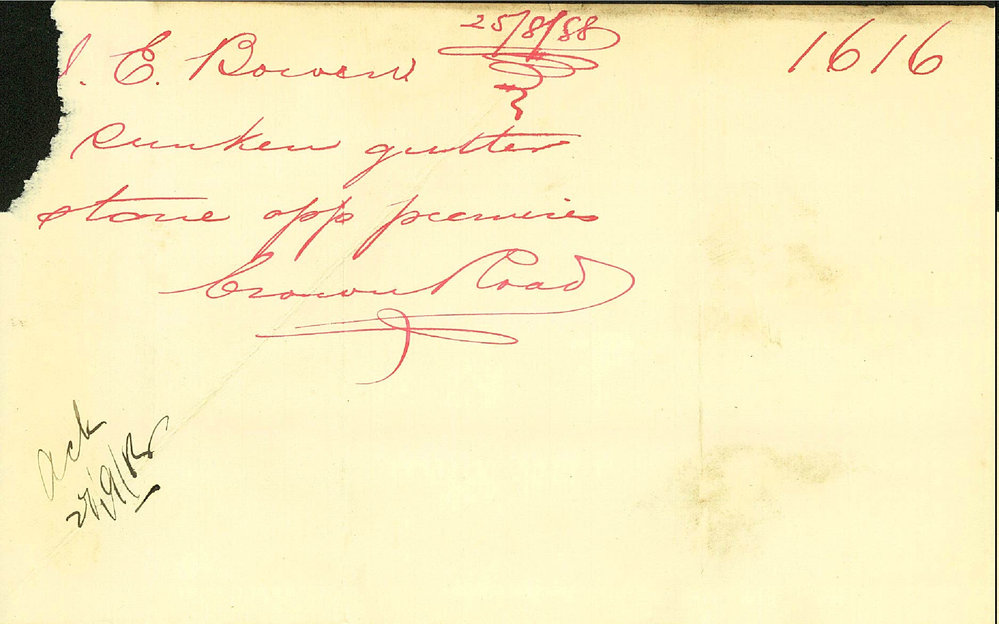 25/8/88
1616
. E. Bowen
Sunken gutter
stone opp premises
Crown Road
Ack